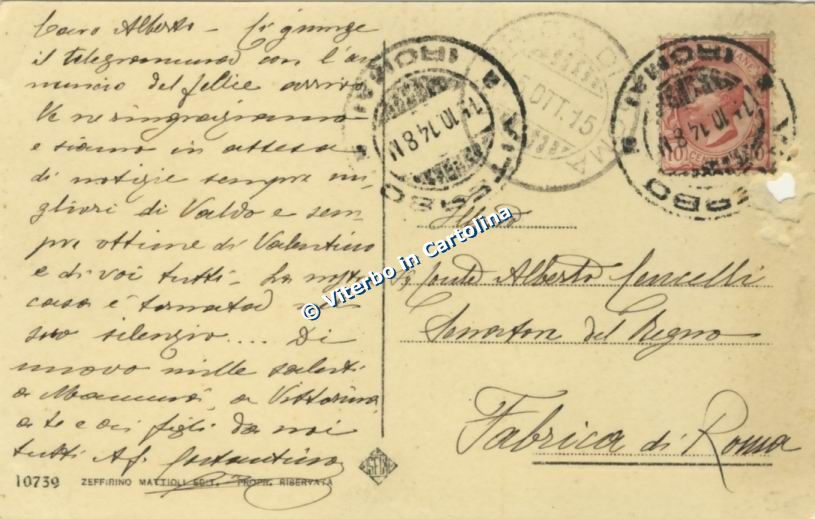 Caro Alberto - Ci giunge
il telegramma con l'an
nuncio del felice arrivo
Ve ne ringraziamo
e siamo in attesa
di notizie sempre mi
gliori di Valdo e sem
pre ottime di Valentino
e di voi tutti - La nostra
casa è tornata nel
suo silenzio.... Di
nuovo mille saluti
a Mammà, a Vittorina
a te e ai figli da noi
tutti Af. Costantino
10739 ZEFFIRINO MATTIOLI EDIT. PROPR. RISERVATA
VITERBO
(ROMA)
14.10.14 8 N
OTT. 15
VITERBO
(ROMA)
14.10.14 8 N
10 CENT 10
© Viterbo in Cartolina
Conte Alberto Cencelli
Senatore del Regno
Fabrica di Roma